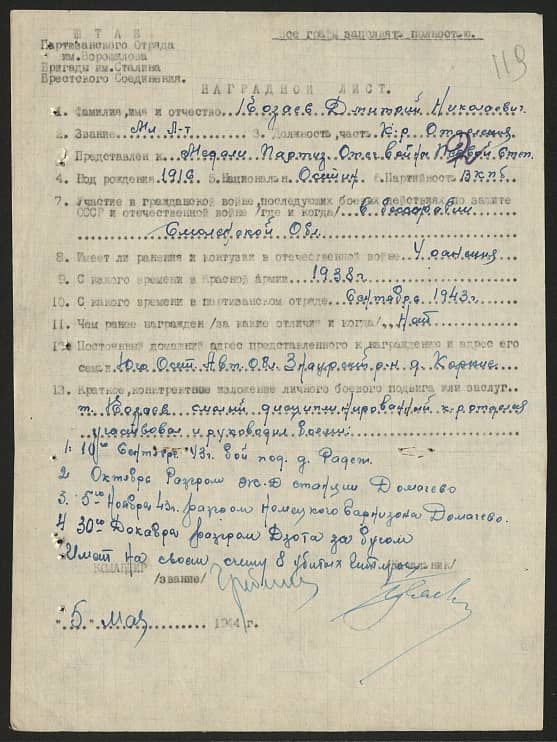 ШТАБ
Партизанского Отряда
им.Ворошилова
Бригады им.Сталина
Брестского Соединения.
Все графы заполнять полностью.
119
НАГРАДНОЙ ЛИСТ.
1. Фамилия, имя и отчество Козаев Дмитрий Николаевич
2. Звание Мл. Л-т 3. Должность, часть К-р Отделения
3 Представлен к Медали Партиз. Отеч. войны Первой Степ.
4. Год рождения 1916 5. Национальн. Осетин 6. Партийность ВКПб
7. Участие в гражданской войне, последующих боевых действиях по защите
СССР и отечественной войне /где и когда/ в
Смоленской Обл
8. Имеет ли ранения и контузии в отечественной войне 4 ранения
9. С какого времени в Красной Армии 1938 г
10. С какого времени в партизанском отряде Сентября 1943 г
11. Чем ранее награжден /за какие отличия и когда/ Нет
12. Постоянный домашний адрес представленного к награждению и адрес его
семьи Юго Осет. Авт. Обл. Знаурский р-н д. Корнис
13. Краткое, конкретное изложение личного боевого подвига или заслуг
т. Козаев смелый дисциплинированный к-р отделен
участвовал и руководил боем:
1. 10го Сентября 43 г. бой под д.
2 Октября Разгром Ж-Д станции Домачево
3. 5го Ноября 43 г. разгром Немецкого Гарнизона Домачево.
4 30го Декабря разгром Дзота за Бугом
Имеет на своем счету 8 убитых
КОМАНДИР
/звание/
"5" Мая 1944 г.